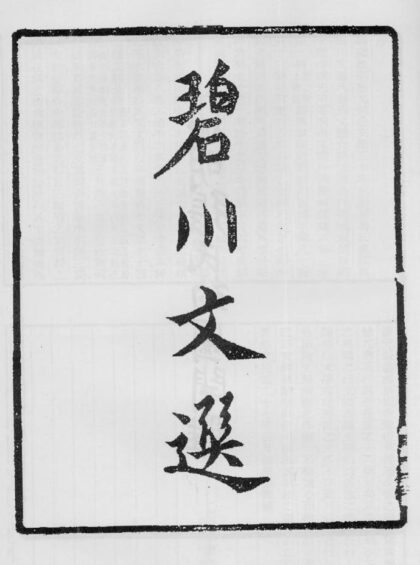 碧川文選